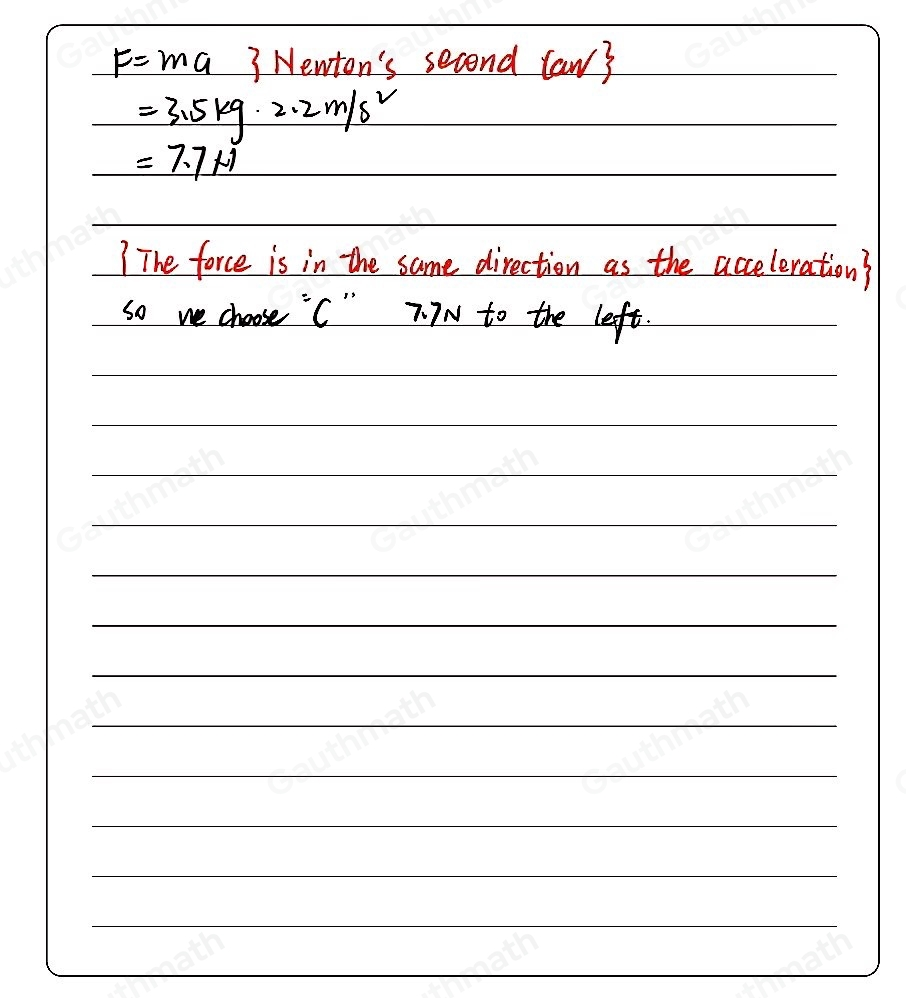 F = ma {Newton's second law}
= 3.5 kg · 2.2 m/s²
= 7.7 N
{The force is in the same direction as the acceleration}
so we choose "C" 7.7N to the left.